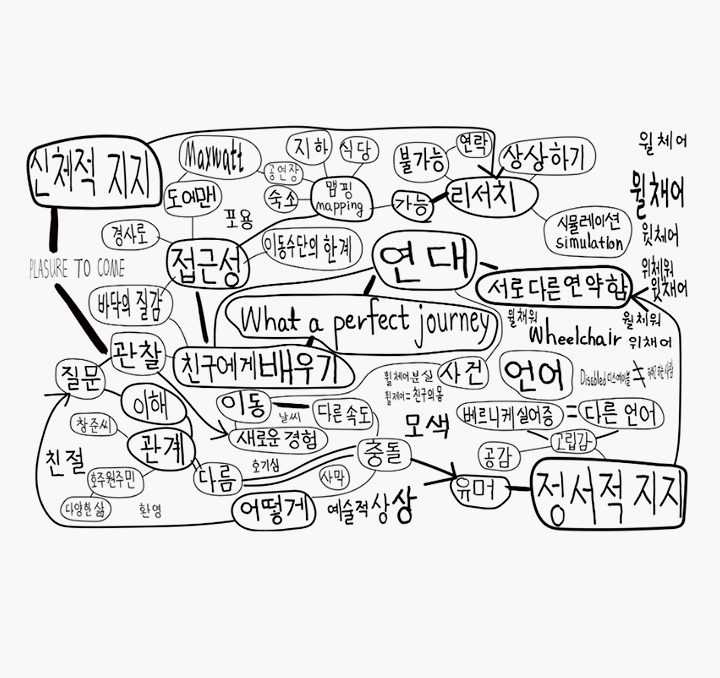 신체적 지지
Maxwatt
지하
식당
연락
불가능
상상하기
휠체어
공연장
도어맨
숙소
맵핑
mapping
가능
리서치
휠채어
포용
시뮬레이션
simulation
경사로
이동수단의 한계
윗체어
PLASURE TO COME
접근성
연대
위체워
서로 다른 연약함
윗채어
바닥의 질감
What a perfect journey
휠채워
휠체워
Wheelchair
위채어
관찰
친구에게 배우기
질문
휠체어 분실
휠체어=친구의 몸
사건
언어
이해
이동
날씨
다른 속도
모색
베르니케 실어증 = 다른 언어
창준씨
관계
새로운 경험
고립감
친절
호기심
충돌
공감
호주원주민
다름
사막
유머
정서적 지지
다양한 삶
환영
어떻게
예술적 상상